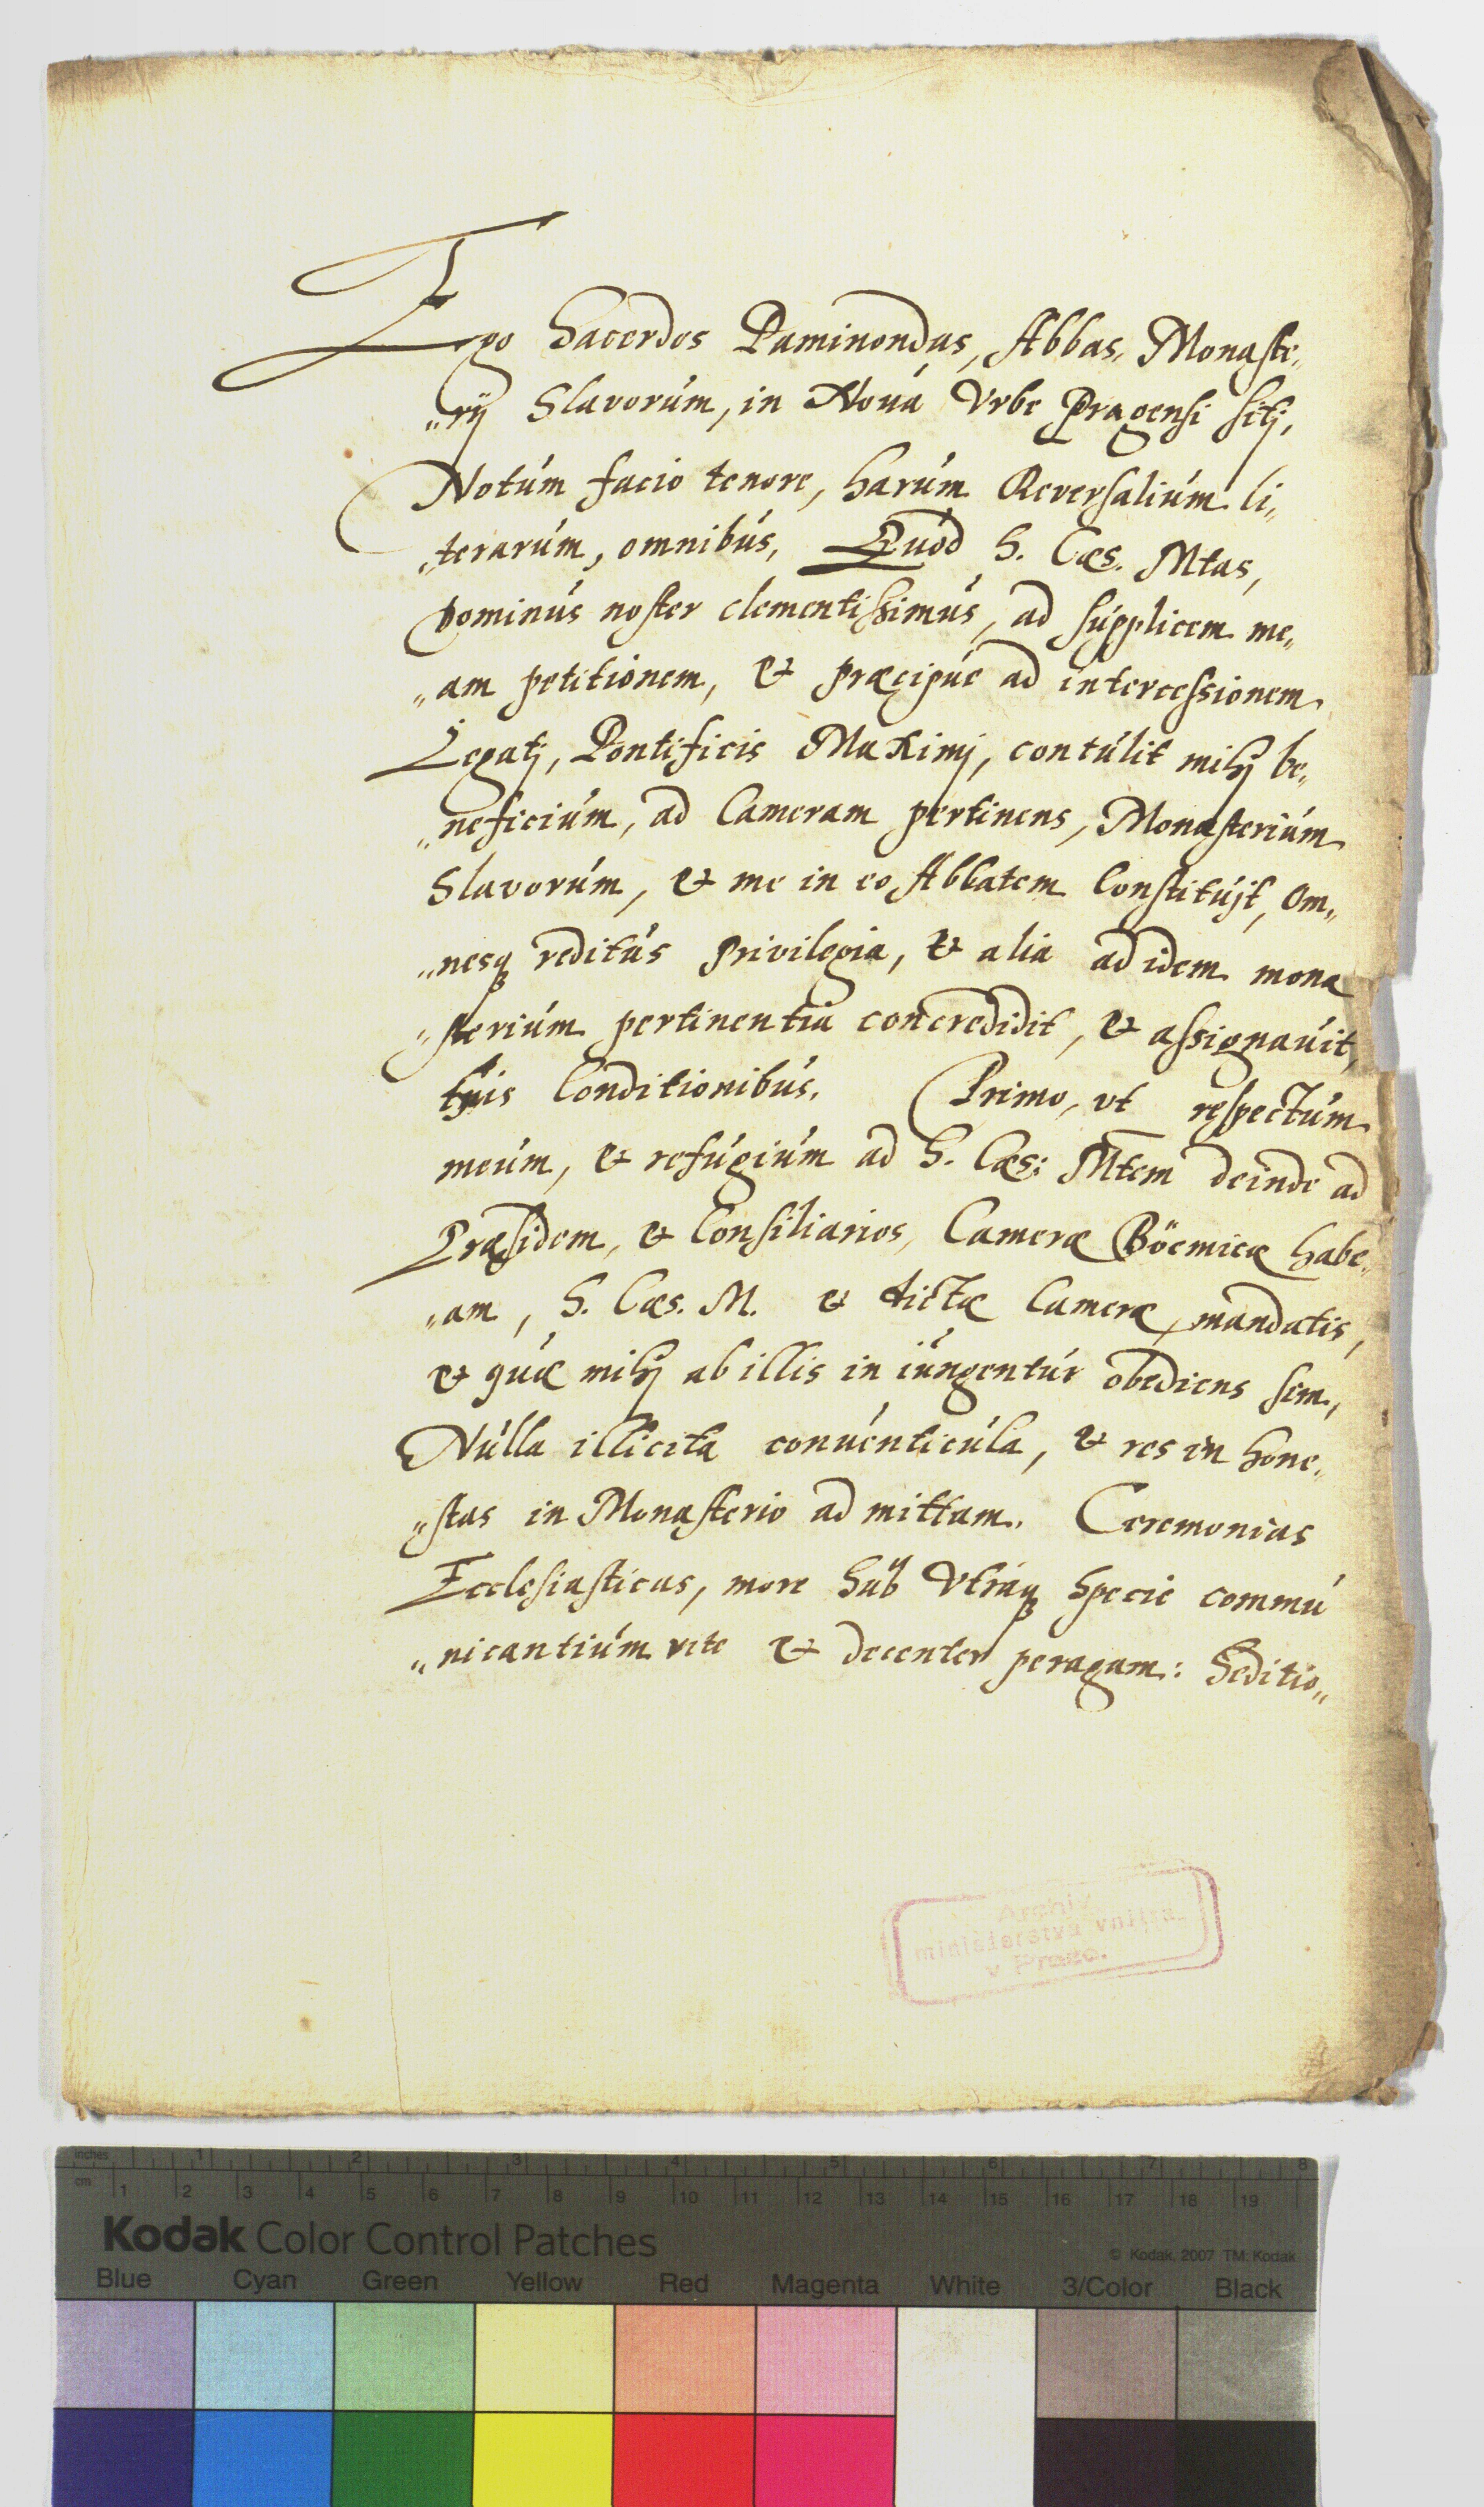 Ego Sacerdos Paminondas, Abbas Monaste„
„rij Slavorúm, in Nouá Vrbe Pragensi sitj,
Notúm facio tenore, harúm Reversaliúm li„
„terarúm, omnibús, Quód S. Cæs. Mtas,
Dominús noster clementissimús, ad súpplicem me„
„am petitionem, & præcipúe ad intercessionem
Legatj, Pontificis Maximj, contúlit mihj be„
„neficiúm, ad Cameram pertinens, Monasteriúm
Slavorúm, & me in eo Abbatem Constitújt, Om„
„nesq reditús Privilegia, & alia ad idem mona
„steriúm pertinentia concredidit, & assignauit,
Conditionibús. Primo, vt respectúm
meúm, & refúgiúm ad S. Cæs: Mtem deinde ad
Præsidem, & Consiliarios, Cameræ Böemicæ habe„
„am, S. Cæs. M. & dictæ Cameræ mandatis,
& qúæ mihj ab illis in iúngentúr obediens sim,
Núlla illicita conúenticúla, & res in hone„
„stas in Monasterio ad mittam. Ceremonias
Ecclesiasticas, more Súb Vtráq Specie commú
„nicantiúm rite & decenter peragam: Seditio„
Archiv
ministerstva vnitra
v Praze.
inches 1 2 3 4 5 6 7 8
cm 1 2 3 4 5 6 7 8 9 10 11 12 13 14 15 16 17 18 19
Kodak Color Control Patches
© Kodak, 2007 TM: Kodak
Blue Cyan Green Yellow Red Magenta White 3/Color Black